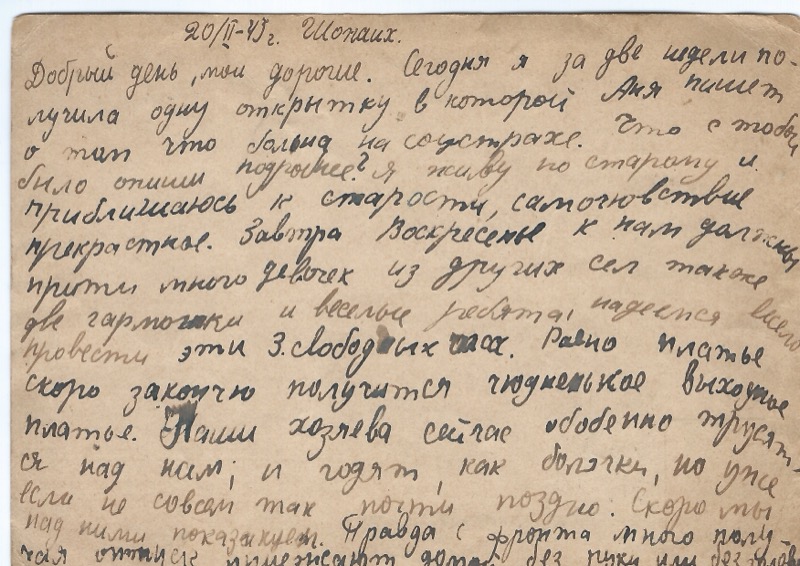 20/II-43г. Шопаих.
Добрый день, мои дорогие. Сегодня я за две недели по-
лучила одну открытку в которой Аня пишет
о том что больна на соцстрахе. Что с тобой
было опиши подробнее? я живу по старому и
приближаюсь к старости, самочювствие
прекрастное. Завтра Воскресенье к нам должны
притти много девочек из других сел также
две гармошки и веселые ребята, надеемся весело
провести эти 3. свободных часа. Раено платье
скоро закончю получится чюдненькое выходное
платье. Наши хозяева сейчас обобенно трусят-
ся над ним; и годят, как болячки, но уже
если не совсем так почти поздно. Скоро мы
над ними показакуем. Правда с фронта много полу-
чая отпуск приежжают домой без руки или без